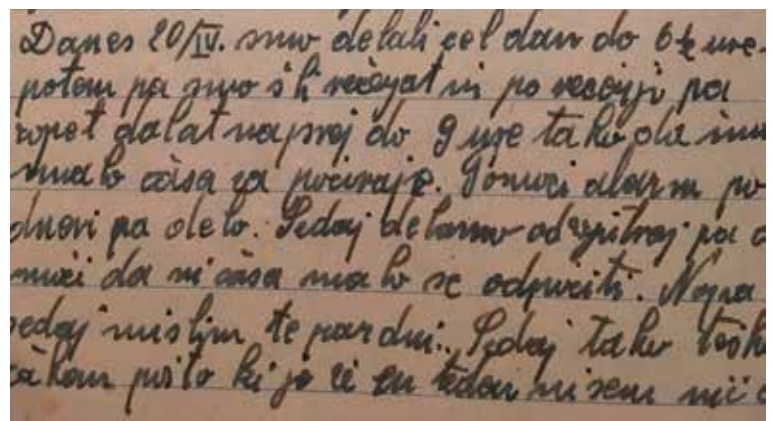 Danes 20/IV. smo delali cel dan do 6½ ure.
potem pa smo šli večerjat in po večerji pa
zopet dalat naprej do 9 ure tako da ima
malo časa za počivaje. Ponoči alarm po
dnevi pa delo. Sedaj delamo od zjutraj pa
noči da ni časa malo se odpočiti.
sedaj mislim te par dni. Sedaj tako
čakam pošto ki je že en teden nisem nič